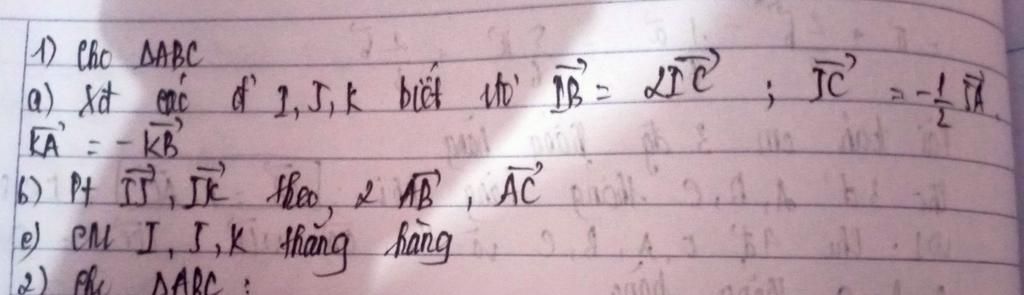 1) Cho ΔABC
a) Xđ các đ' I, J, K biết vtơ IB⃗ = 2IC⃗ ; JC⃗ = -1/2 JA⃗.
KA⃗ = -KB⃗
b) Pt IJ⃗, IK⃗ theo, 2 AB⃗, AC⃗
c) CM I, J, K thẳng hàng
2) Cho ΔABC :